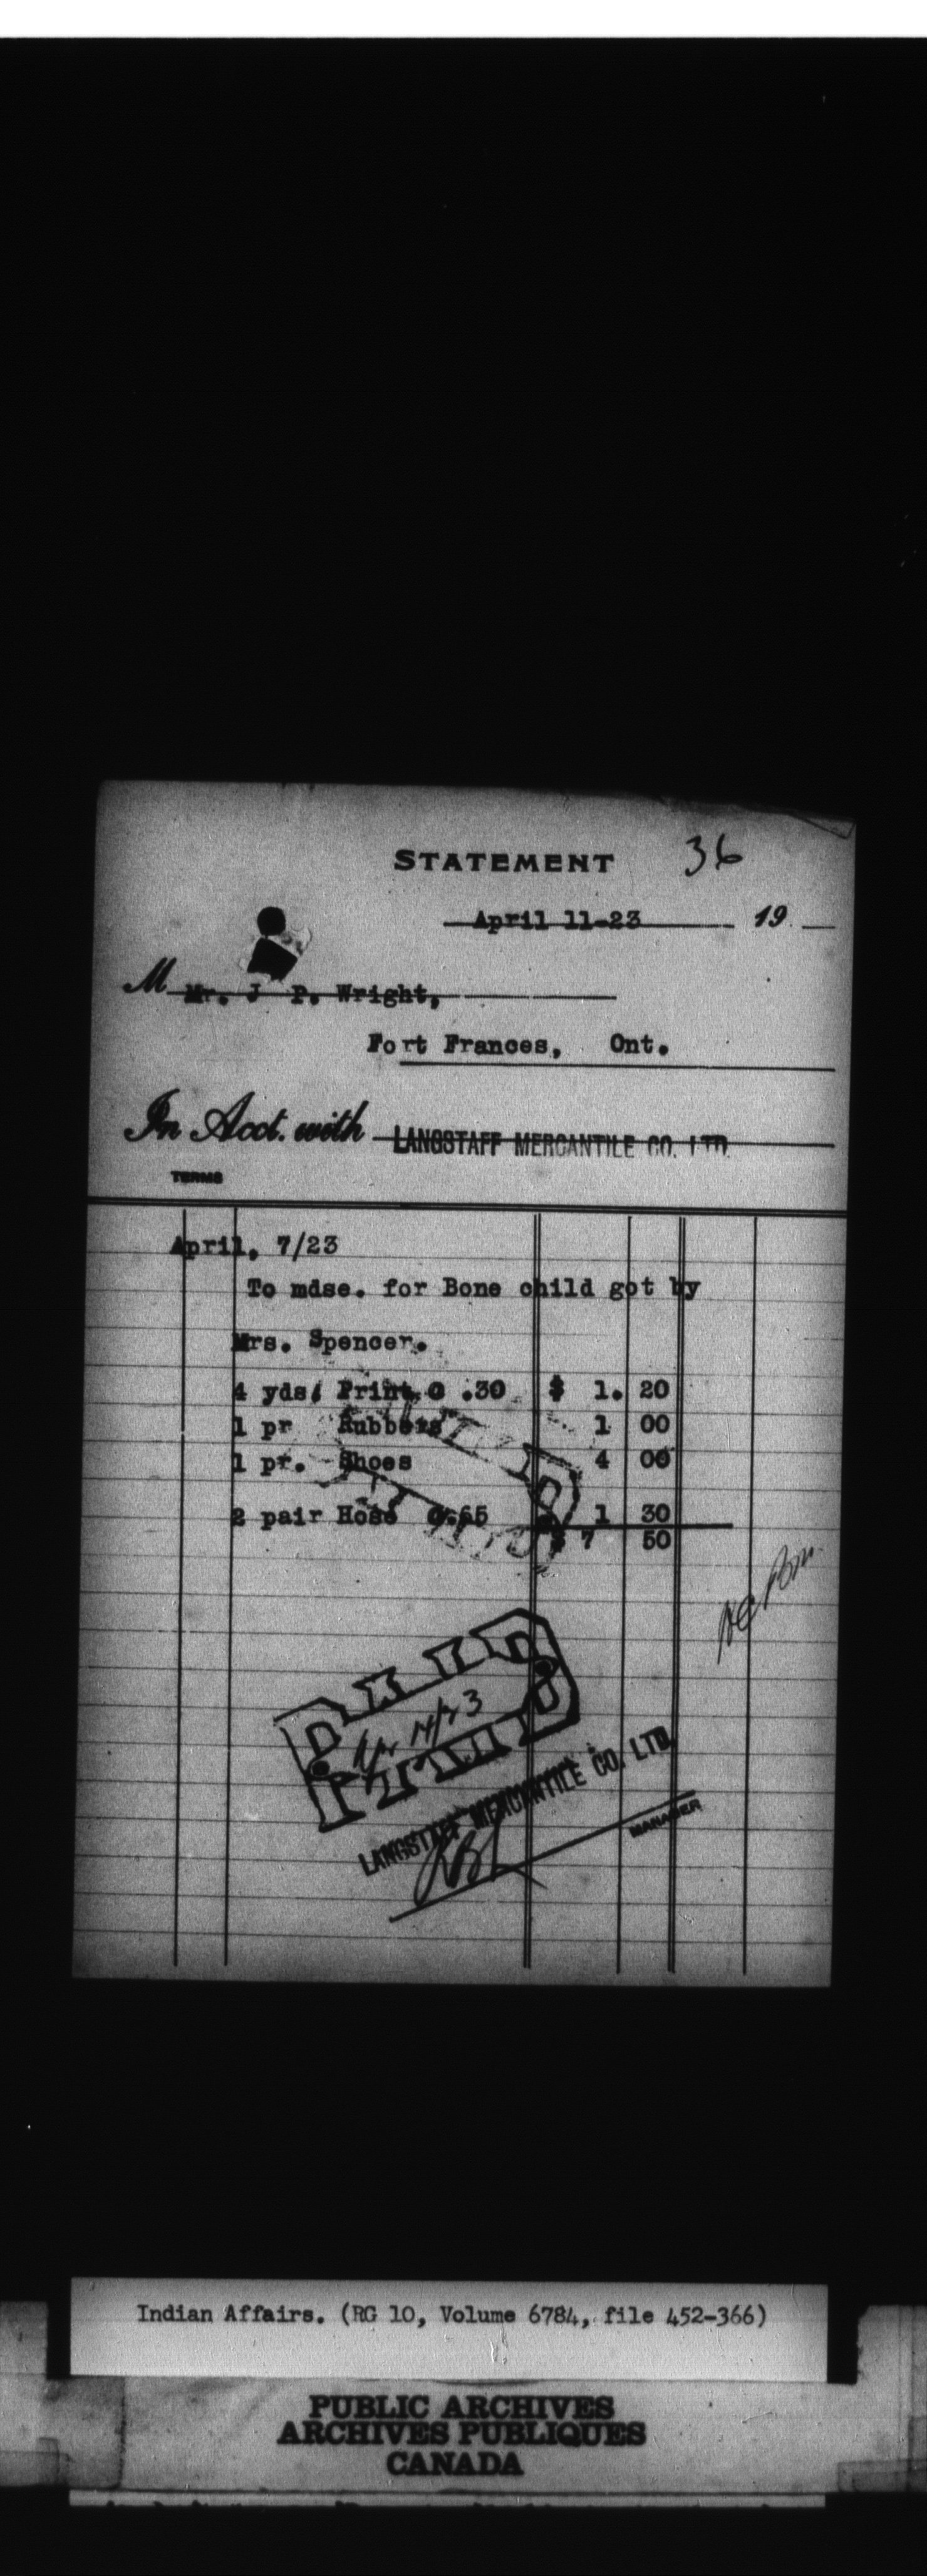 STATEMENT 36
April 11-23 19
M Mr. J P. Wright,
Fort Frances, Ont.
In Acct. with LANGSTAFF MERCANTILE CO. LTD.
TERMS
April, 7/23
To mdse. for Bone child got by
Mrs. Spencer.
4 yds, Print @ .30 $ 1. 20
1 pr Rubbers 1 00
1 pr. Shoes 4 00
2 pair Hose @.65 1 30
$ 7 50
LANGSTAFF MERCANTILE CO. LTD.
MANAGER
Indian Affairs. (RG 10, Volume 6784, file 452-366)
PUBLIC ARCHIVES
ARCHIVES PUBLIQUES
CANADA